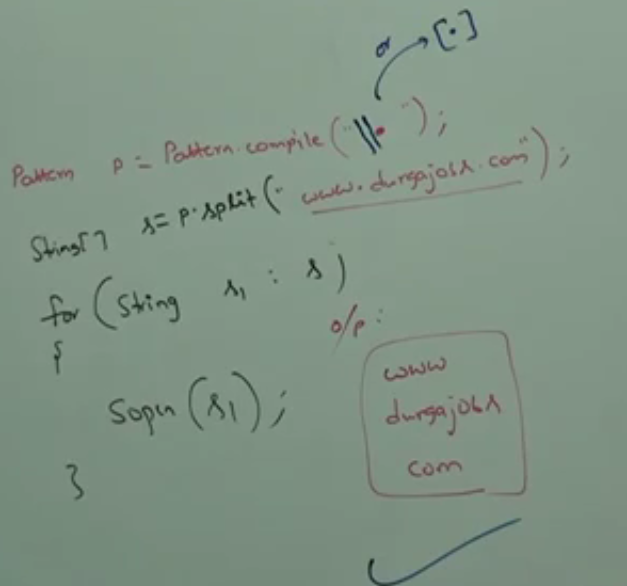 or [.]
Pattern p = Pattern.compile("\\.");
String[] s = p.split("www.durgajobs.com");
for (String s1 : s)
{
o/p:
Sopln(s1);
www
durgajobs
com
}